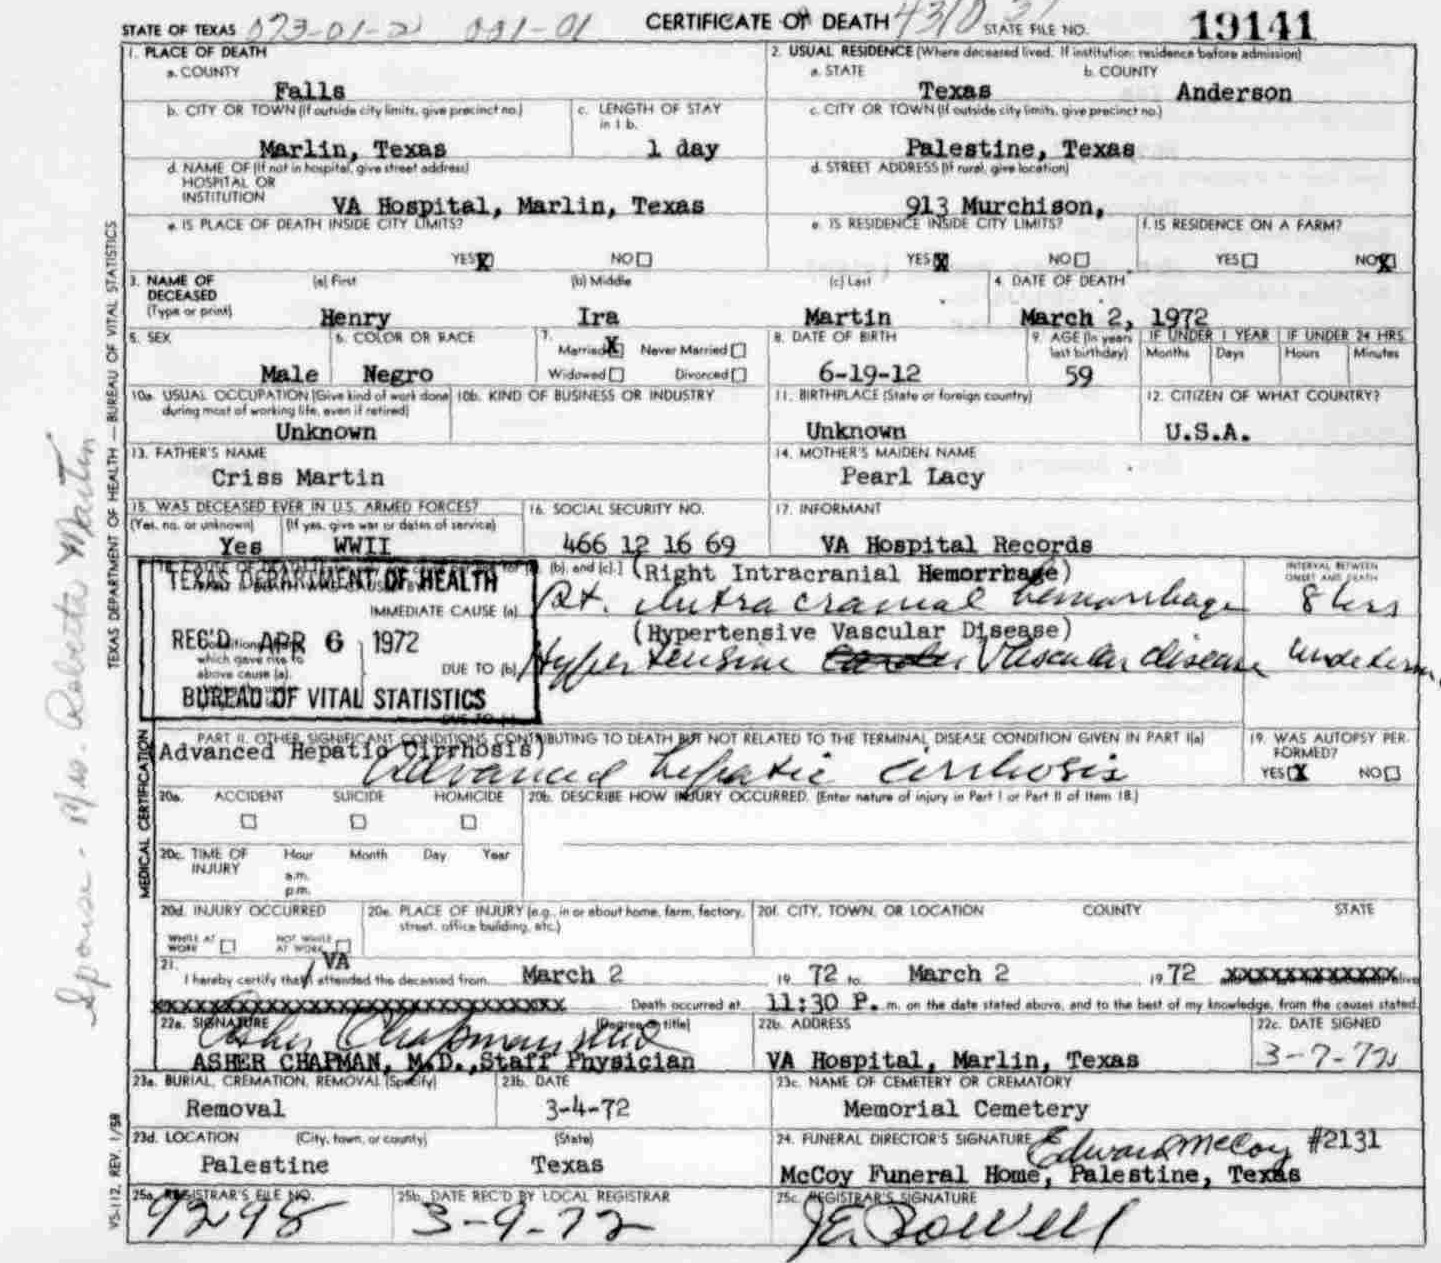 STATE OF TEXAS 073-01-2 001-01 CERTIFICATE OF DEATH 4310 STATE FILE NO. 19141
1. PLACE OF DEATH 2. USUAL RESIDENCE (Where deceased lived. If institution: residence before admission)
a. COUNTY a. STATE b. COUNTY
Falls Texas Anderson
b. CITY OR TOWN (If outside city limits, give precinct no.) c. LENGTH OF STAY in 1 b. c. CITY OR TOWN (If outside city limits, give precinct no.)
Marlin, Texas 1 day Palestine, Texas
d. NAME OF (If not in hospital, give street address) HOSPITAL OR INSTITUTION d. STREET ADDRESS (If rural, give location)
VA Hospital, Marlin, Texas 913 Murchison,
e. IS PLACE OF DEATH INSIDE CITY LIMITS? e. IS RESIDENCE INSIDE CITY LIMITS? f. IS RESIDENCE ON A FARM?
YES X NO YES X NO YES NO X
3. NAME OF DECEASED (Type or print) (a) First (b) Middle (c) Last 4. DATE OF DEATH
Henry Ira Martin March 2, 1972
5. SEX 6. COLOR OR RACE 7. Married X Never Married Widowed Divorced 8. DATE OF BIRTH 9. AGE (In years last birthday) IF UNDER 1 YEAR Months Days IF UNDER 24 HRS. Hours Minutes
Male Negro 6-19-12 59
10a. USUAL OCCUPATION (Give kind of work done during most of working life, even if retired) 10b. KIND OF BUSINESS OR INDUSTRY 11. BIRTHPLACE (State or foreign country) 12. CITIZEN OF WHAT COUNTRY?
Unknown Unknown U.S.A.
13. FATHER'S NAME 14. MOTHER'S MAIDEN NAME
Criss Martin Pearl Lacy
15. WAS DECEASED EVER IN U.S. ARMED FORCES? 16. SOCIAL SECURITY NO. 17. INFORMANT
(Yes, no, or unknown) (If yes, give war or dates of service)
Yes WWII 466 12 16 69 VA Hospital Records
(b), and (c).] (Right Intracranial Hemorrhage) INTERVAL BETWEEN ONSET AND DEATH
TEXAS DEPARTMENT OF HEALTH
IMMEDIATE CAUSE (a) Rt. Intracranial hemorrhage 8 hrs
REC'D APR 6 1972 (Hypertensive Vascular Disease)
which gave rise to above cause (a). DUE TO (b) Hypertensive Vascular disease undeterm.
BUREAU OF VITAL STATISTICS
PART II. OTHER SIGNIFICANT CONDITIONS CONTRIBUTING TO DEATH BUT NOT RELATED TO THE TERMINAL DISEASE CONDITION GIVEN IN PART I(a) 19. WAS AUTOPSY PERFORMED?
Advanced Hepatic Cirrhosis)
Advanced hepatic cirrhosis YES X NO
20a. ACCIDENT SUICIDE HOMICIDE 20b. DESCRIBE HOW INJURY OCCURRED. (Enter nature of injury in Part I or Part II of Item 18.)
20c. TIME OF INJURY Hour Month Day Year
a.m.
p.m.
20d. INJURY OCCURRED 20e. PLACE OF INJURY (e.g., in or about home, farm, factory, street, office building, etc.) 20f. CITY, TOWN, OR LOCATION COUNTY STATE
WHILE AT WORK NOT WHILE AT WORK
21. VA
I hereby certify that attended the deceased from March 2 19 72 to March 2 19 72 XXXXXXXXXXXXX alive
XXXXXXXXXXXXXXXXXXXXXXXXXXXXXX Death occurred at 11:30 P. m. on the date stated above, and to the best of my knowledge, from the causes stated.
22a. SIGNATURE (Degree or title) 22b. ADDRESS 22c. DATE SIGNED
Asher Chapman MD
ASHER CHAPMAN, M.D., Staff Physician VA Hospital, Marlin, Texas 3-7-72
23a. BURIAL, CREMATION, REMOVAL (Specify) 23b. DATE 23c. NAME OF CEMETERY OR CREMATORY
Removal 3-4-72 Memorial Cemetery
23d. LOCATION (City, town, or county) (State) 24. FUNERAL DIRECTOR'S SIGNATURE Edward McCoy #2131
Palestine Texas McCoy Funeral Home, Palestine, Texas
25a. REGISTRAR'S FILE NO. 25b. DATE REC'D BY LOCAL REGISTRAR 25c. REGISTRAR'S SIGNATURE
9298 3-9-72 JE Powell
TEXAS DEPARTMENT OF HEALTH — BUREAU OF VITAL STATISTICS
MEDICAL CERTIFICATION
VS-112, REV. 1/58
Spouse - Mrs. Roberta Martin